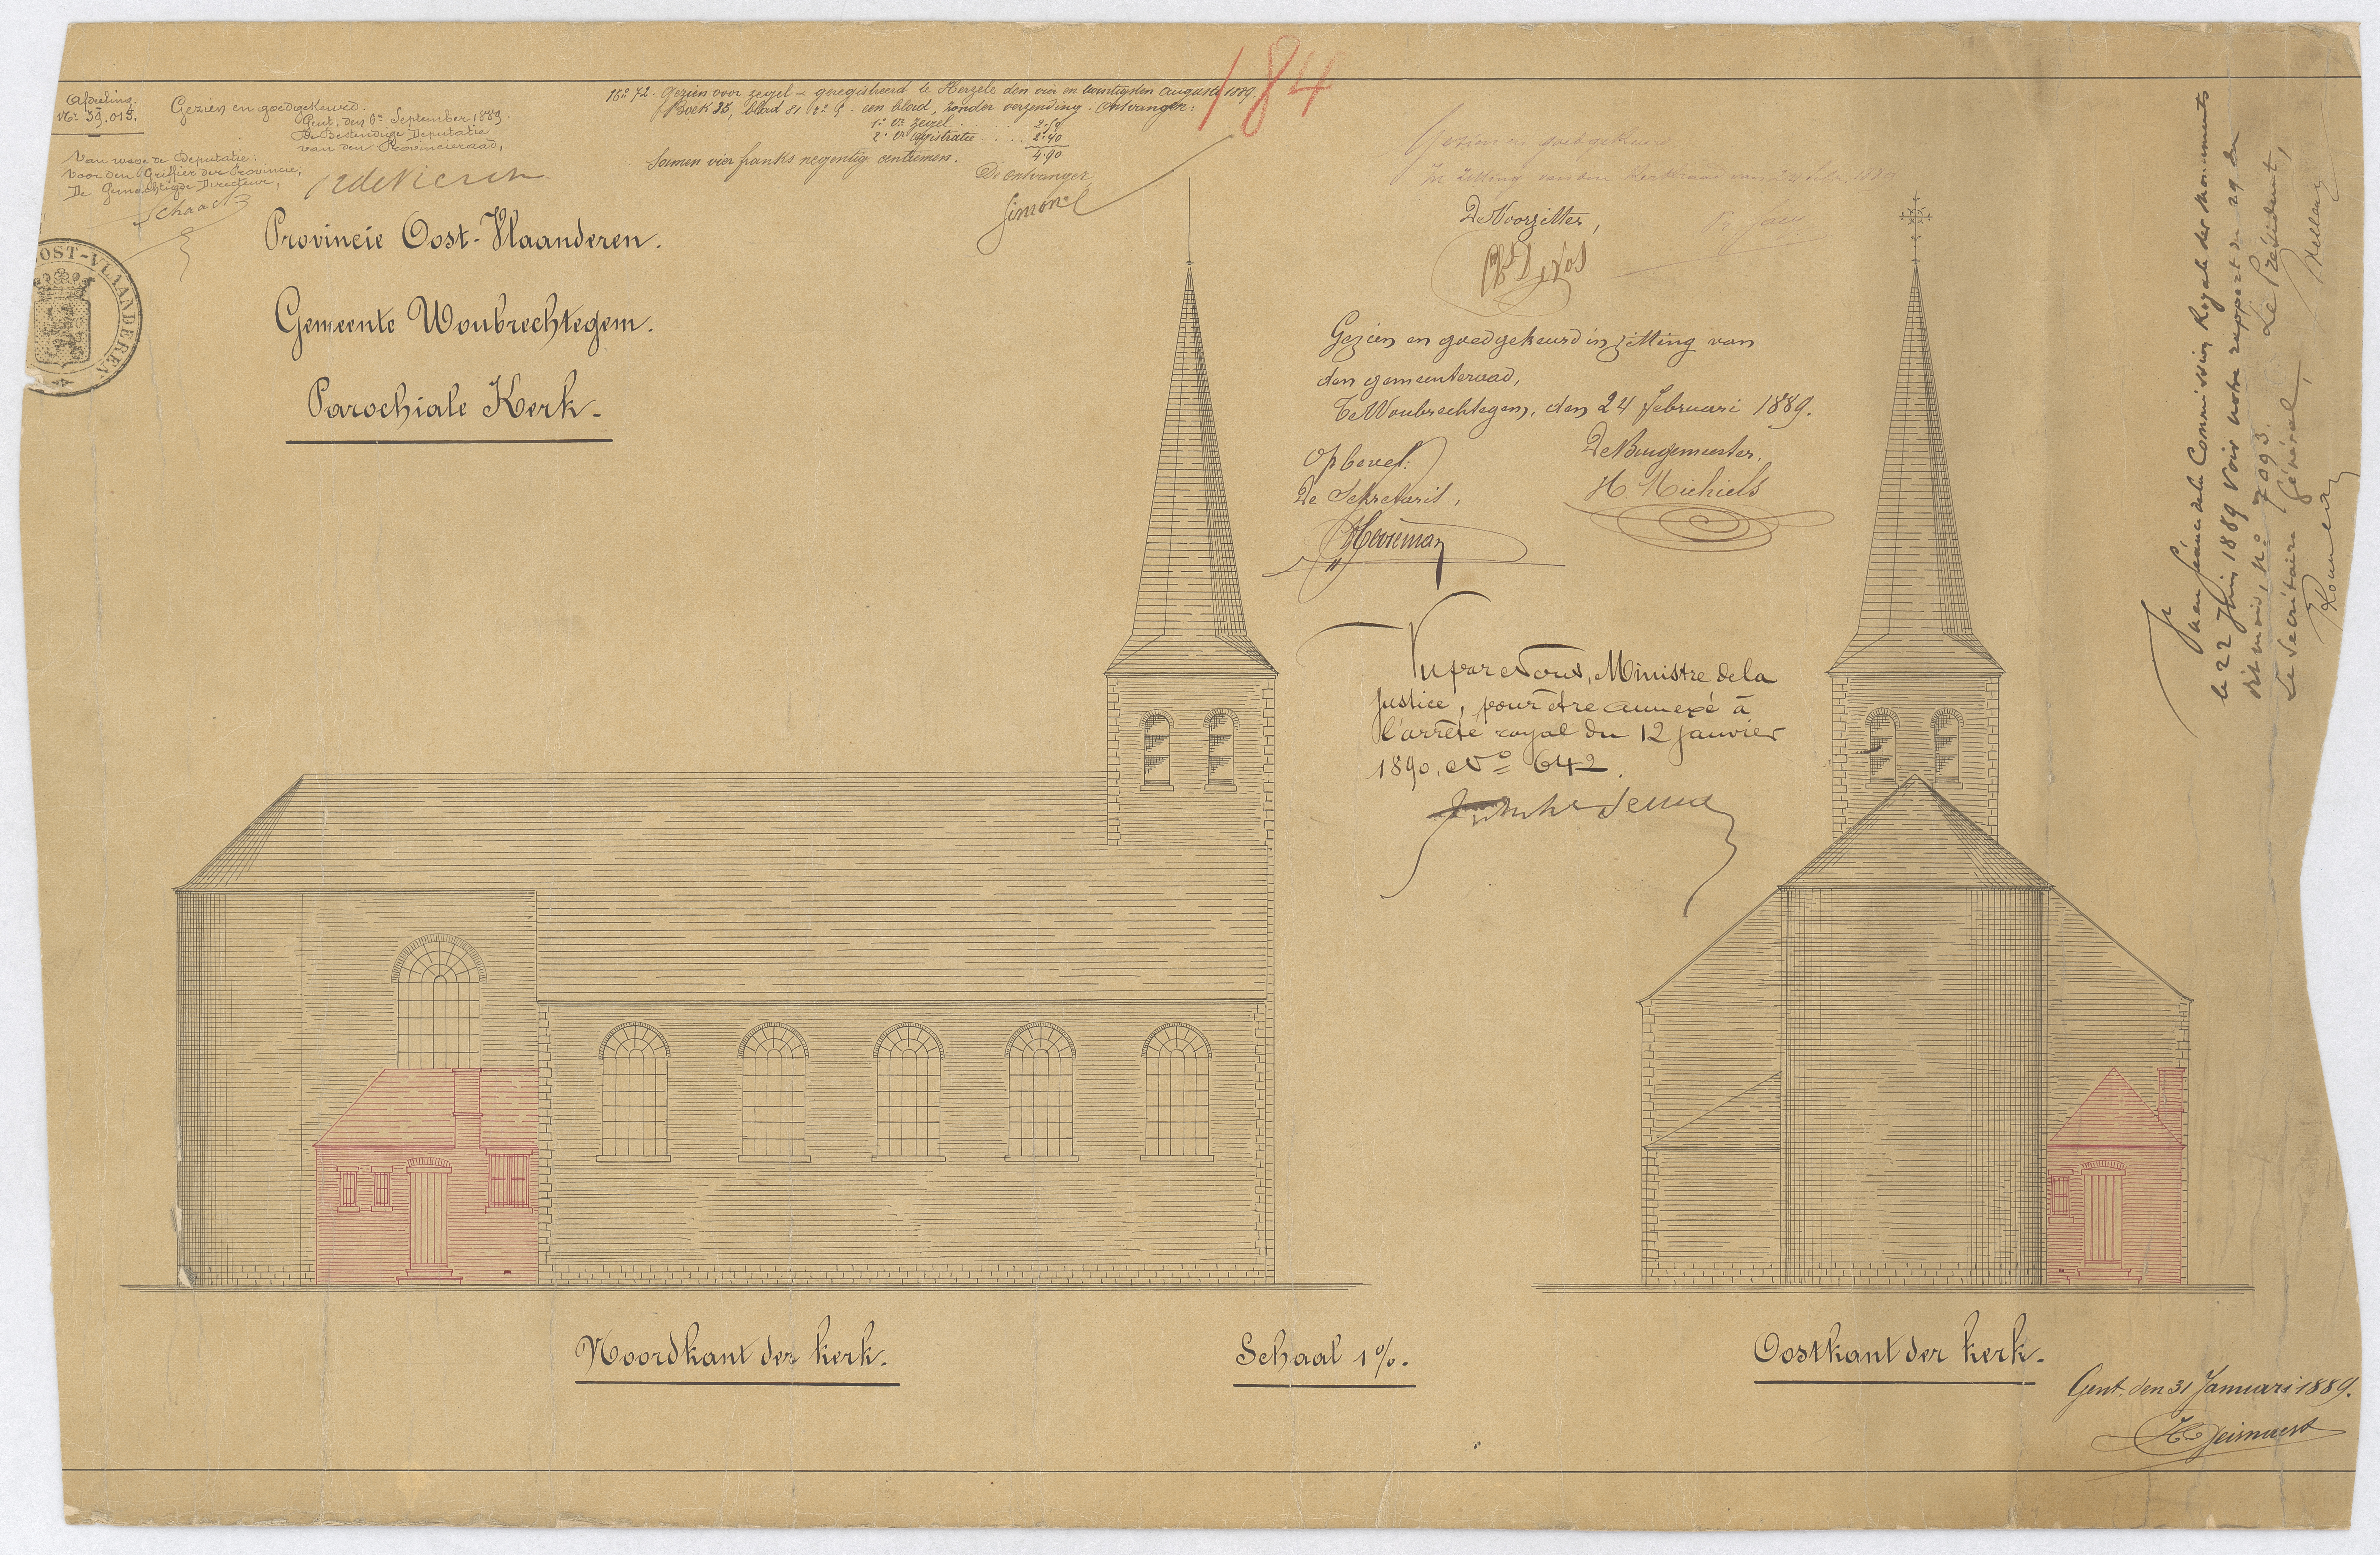 Afdeeling.
Nr 59.015.
Gezien en goedgekeurd.
Gent, den 6n September 1889.
De Bestendige Deputatie
van den Provincieraad,
Van wege de Deputatie:
Voor den Griffier der Provincie,
De Gemachtigde Directeur,
OOST-VLAANDEREN
Provincie Oost-Vlaanderen.
Gemeente Woubrechtegem.
Parochiale Kerk.
Gezien voor zegel - geregistreerd te Herzele den vier en twintigsten augusti 1889.
Boek 35, blad 81 een blad, zonder verzending. Ontvangen:
1° Vr zegel . . 2.50
2° Vr registratie . . . 2.40
4.90
Samen vier franks negentig centiemen.
De ontvanger,
Simon
184
Gezien en goedgekeurd
In zitting van den Kerkraad van
De Voorzitter,
De Vos
Gezien en goedgekeurd in zitting van
den gemeenteraad,
Te Woubrechtegem, den 24 februari 1889.
Op bevel:
De Sekretaris,
De Burgemeester,
H Michiels
Vu par Nous, Ministre de la
Justice, pour être annexé à
l'arrêté royal du 12 janvier
1890, No 642.
Vu en séance de la Commission Royale des Monuments
le 22 Juin 1889 Voir notre rapport du 29 du
dit mois, No 7093.
Le Président,
Le Secrétaire Général,
Noordkant der kerk.
Schaal 1 %.
Oostkant der kerk.
Gent, den 31 Januari 1889.